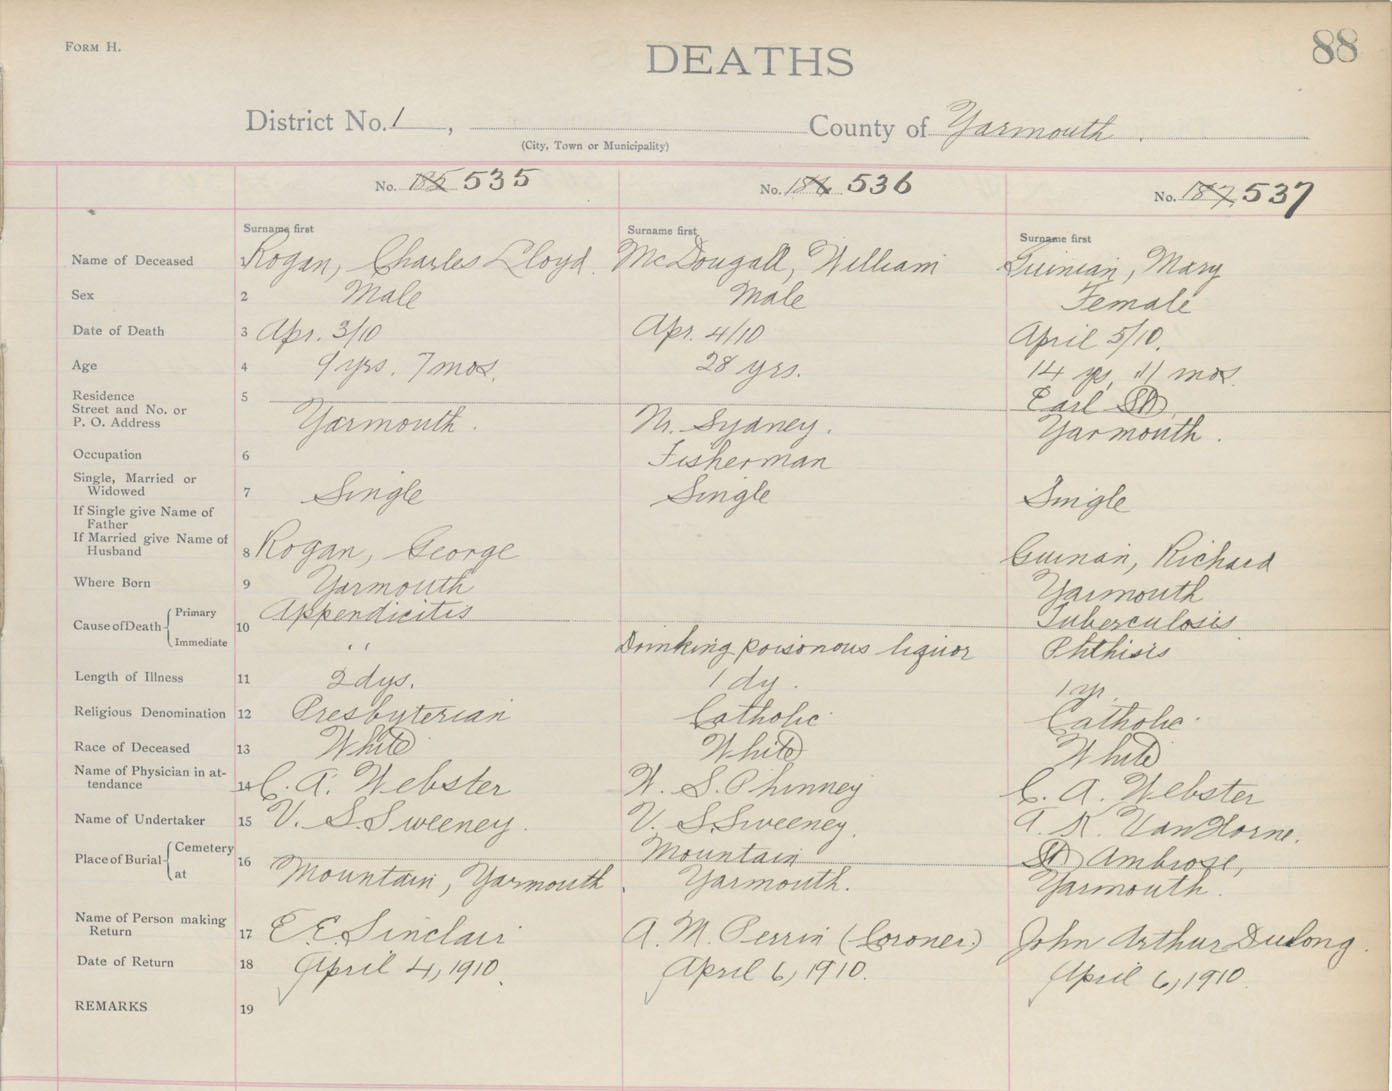 FORM H.
DEATHS
88
District No. 1, County of Yarmouth.
(City, Town or Municipality)
No. 185 535 No. 186 536 No. 187 537
Surname first Surname first Surname first
Name of Deceased 1 Rogan, Charles Lloyd. McDougall, William Guinian, Mary
Sex 2 Male Male Female
Date of Death 3 Apr. 3/10 Apr. 4/10 April 5/10.
Age 4 9 yrs. 7 mos. 28 yrs. 14 ys, 11 mos.
Residence 5 Earl St,
Street and No. or
P. O. Address Yarmouth. Nr. Sydney. Yarmouth.
Occupation 6 Fisherman
Single, Married or
Widowed 7 Single Single Single
If Single give Name of
Father
If Married give Name of
Husband 8 Rogan, George Guinan, Richard
Where Born 9 Yarmouth Yarmouth
Cause of Death 10 Primary Appendicitis Tuberculosis
Immediate " Drinking poisonous liquor Phthisis
Length of Illness 11 2 dys. 1 dy. 1 yr.
Religious Denomination 12 Presbyterian Catholic Catholic
Race of Deceased 13 White White White
Name of Physician in at-
tendance 14 C. A. Webster W. S. Phinney C. A. Webster
Name of Undertaker 15 V. S. Sweeney. V. S. Sweeney. A. K. VanHorne.
Place of Burial 16 Cemetery Mountain St Ambrose,
at Mountain, Yarmouth. Yarmouth. Yarmouth.
Name of Person making
Return 17 E. E. Sinclair A. M. Perrin (Coroner.) John Arthur Dulong.
Date of Return 18 April 4, 1910. April 6, 1910. April 6, 1910.
REMARKS 19